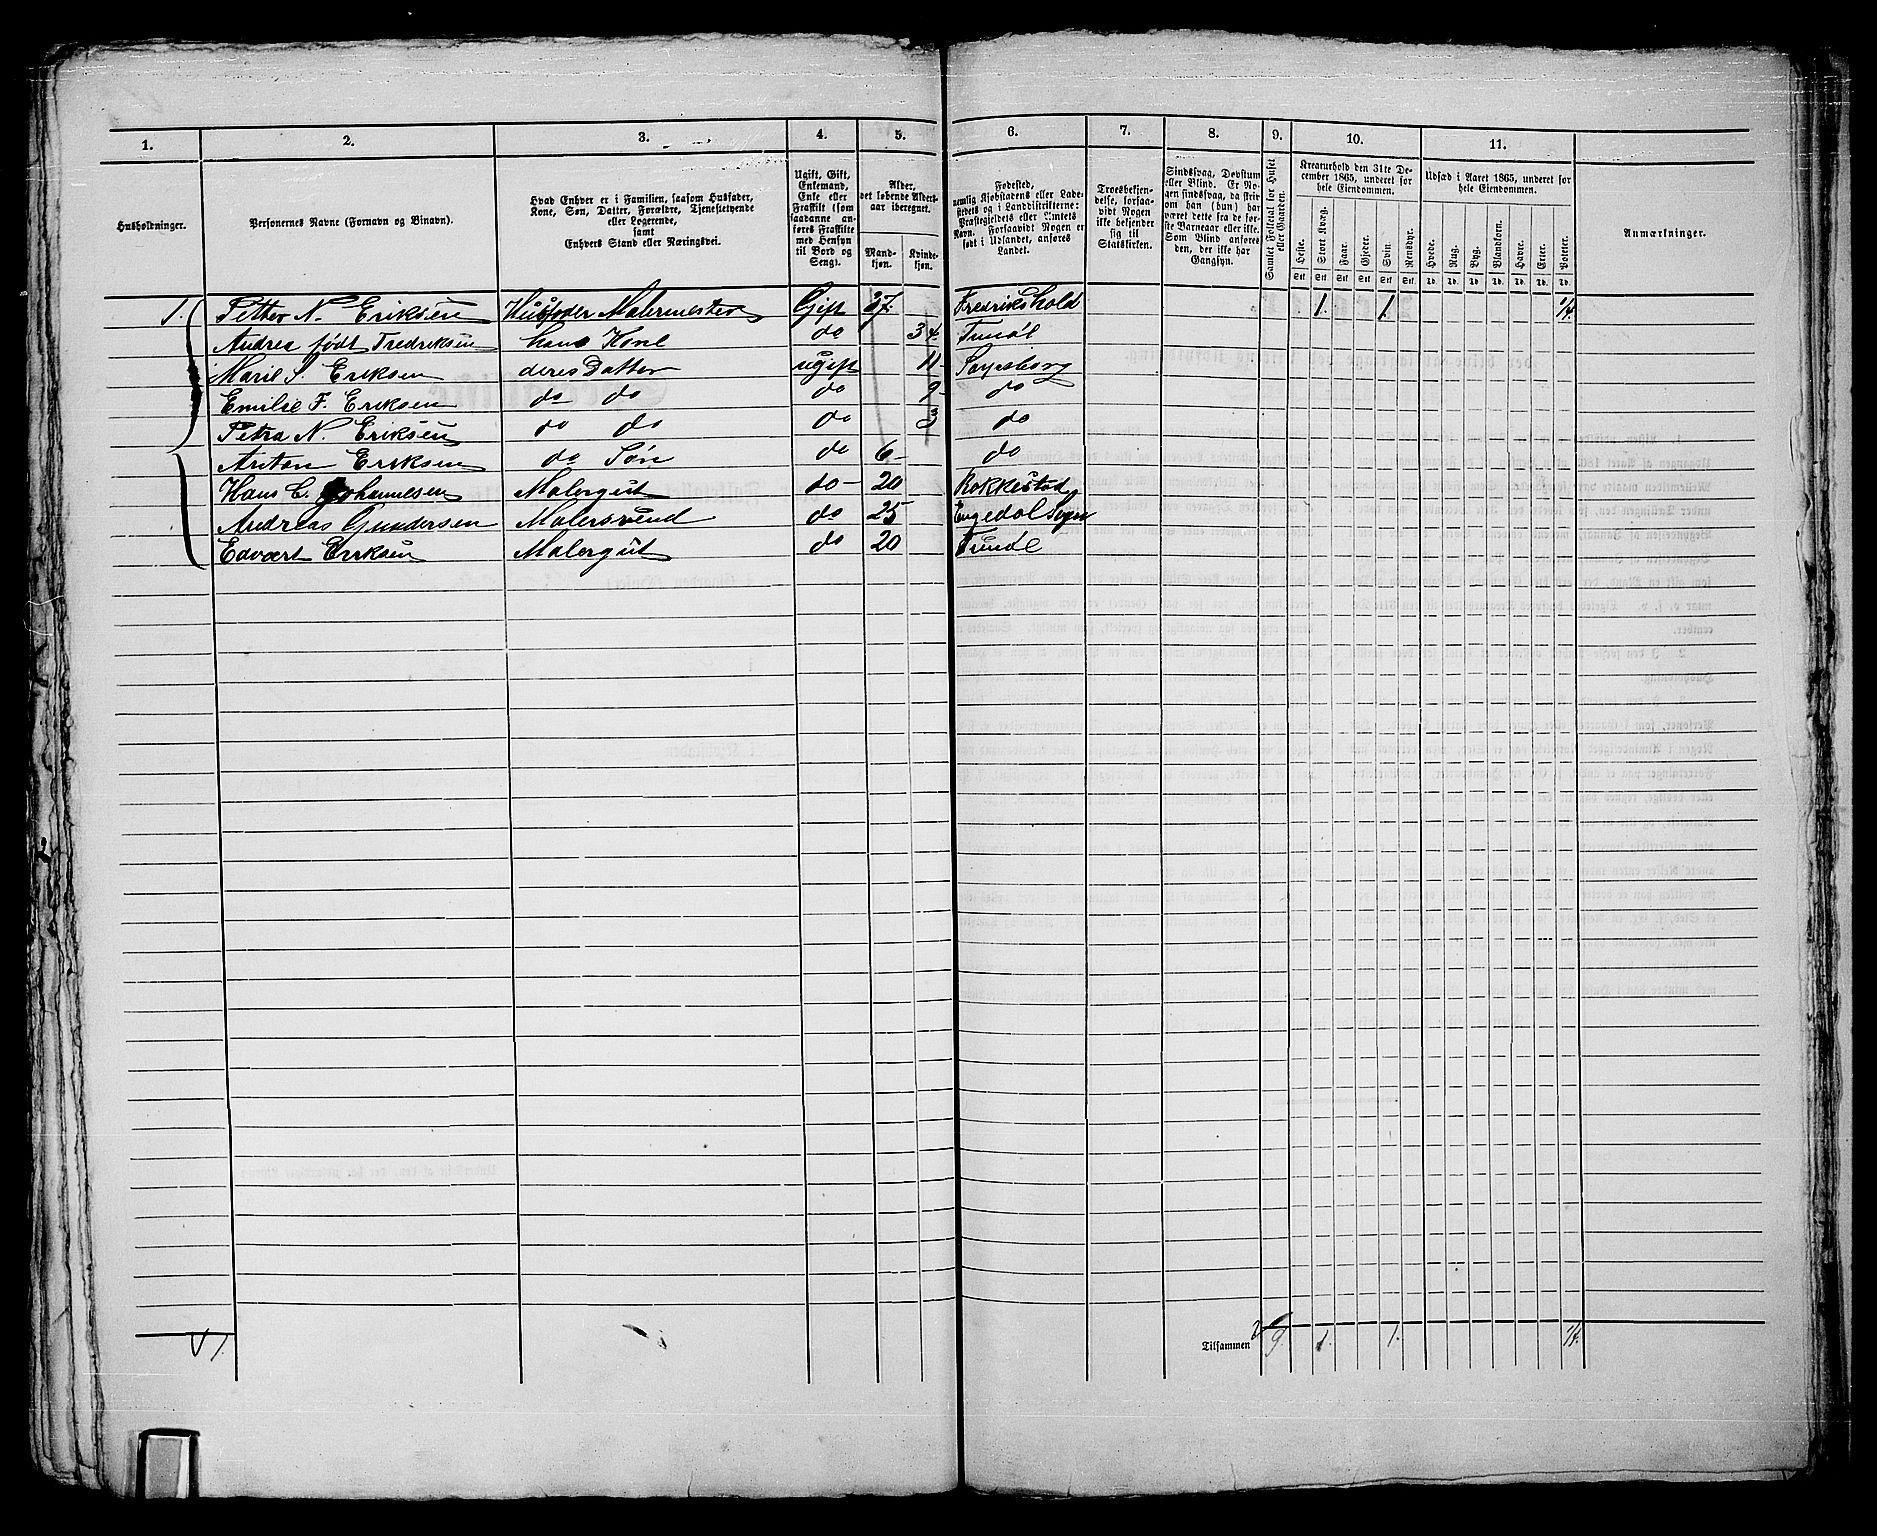 1. 2. 3. 4. 5. 6. 7. 8. 9. 10. 11.
Husholdninger.
Personernes Navne (Fornavn og Binavn).
Hvad Enhver er i Familien, saasom Husfader,
Kone, Søn, Datter, Forældre, Tjenestetyende
eller Logerende,
samt
Enhvers Stand eller Næringsvei.
Ugift, Gift,
Enkemand,
Enke eller
Fraskilt (som
saadanne an-
føres Fraskilte
med Hensyn
til Bord og
Seng).
Alder,
det løbende Alders-
aar iberegnet.
Mand-
kjøn.
Kvinde-
kjøn.
Fødested,
nemlig Kjøbstadens eller Lade-
stedets og i Landdistrikterne:
Præstegjeldets eller Amtets
Navn. Forsaavidt Nogen er
født i Udlandet, anføres
Landet.
Troesbekjen-
delse, forsaa-
vidt Nogen
ikke bekjender
sig til
Statskirken.
Sindssvag, Døvstum
eller Blind. Er No-
gen sindssvag, da skri-
ves om han (hun) har
været dette fra de før-
ste Barneaar eller ikke.
Som Blind anføres
den, der ikke har
Gangsyn.
Samlet Folketal for Huset
eller Gaarden.
Kreaturhold den 31te De-
cember 1865, anført for
hele Eiendommen.
Heste. Stort Kvæg. Faar. Gjeder. Svin. Rensdyr.
Stk. Stk. Stk. Stk. Stk. Stk.
Udsæd i Aaret 1865, anført for
hele Eiendommen.
Hvede. Rug. Byg. Blandkorn. Havre. Erter. Poteter.
Td. Td. Td. Td. Td. Td. Td.
Anmærkninger.
1. Petter N. Eriksen Husfader Malermester Gift 37. Fredrikshold 1. 1. 1/4.
Andrea født Fredriksen hans Kone do 34 Tunøl
Marie S. Eriksen deres Datter ugift 11 Sarpsborg
Emilie F. Eriksen do do do 9 do
Petra N. Eriksen do do do 3 do
Anton Eriksen do Søn do 6 do
Hans C. Johannesen Malergut do 20 Rokkestad
Andreas Gundersen Malersvend do 25 Engedal Sogn
Edvart Eriksen Malergut do 20 Tunøl
1. Tilsammen 9. 1. 1. 1/4.